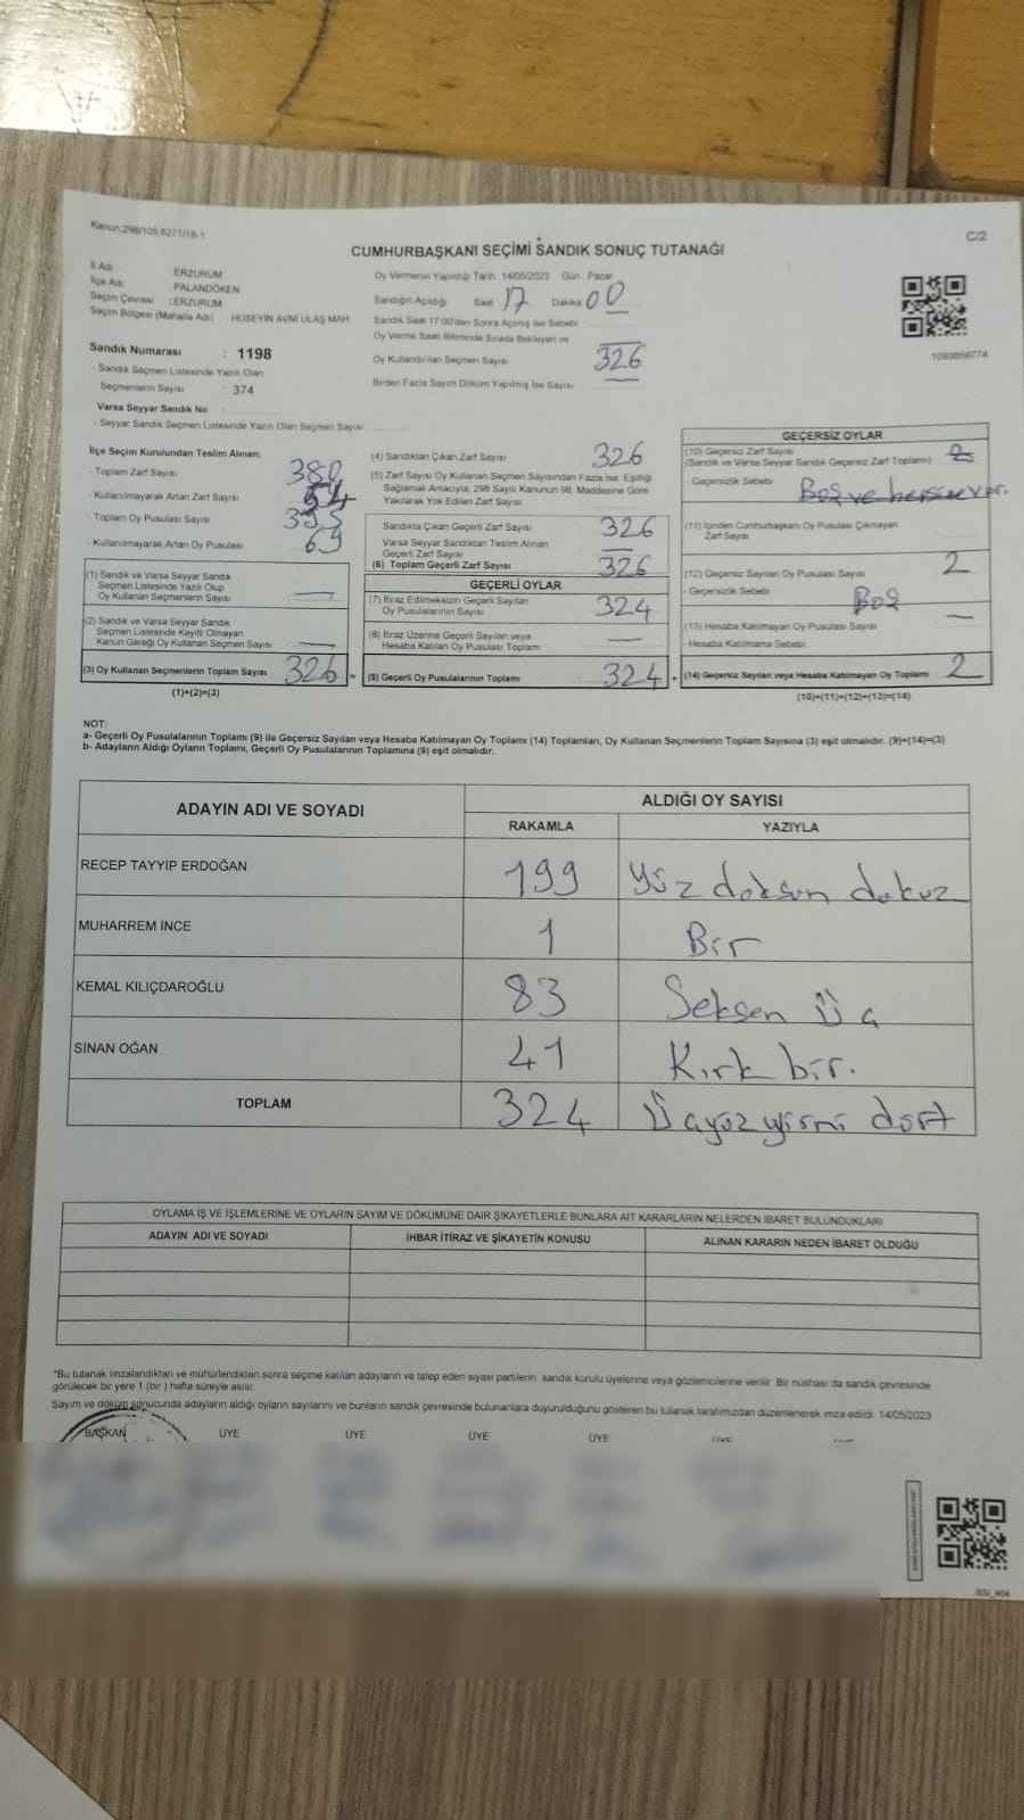 Kanun:298/105,6271/18-1
C/2
CUMHURBAŞKANI SEÇİMİ SANDIK SONUÇ TUTANAĞI
İl Adı ERZURUM
İlçe Adı PALANDÖKEN
Seçim Çevresi : ERZURUM
Seçim Bölgesi (Mahalle Adı) HÜSEYİN AVNİ ULAŞ MAH.
Sandık Numarası : 1198
Sandık Seçmen Listesinde Yazılı Olan
Seçmenlerin Sayısı 374
Varsa Seyyar Sandık No
- Seyyar Sandık Seçmen Listesinde Yazılı Olan Seçmen Sayısı
Oy Vermenin Yapıldığı Tarih 14/05/2023 Gün Pazar
Sandığın Açıldığı Saat 17 Dakika 00
Sandık Saat 17.00'den Sonra Açılmış İse Sebebi
Oy Verme Saati Bitiminde Sırada Bekleyen ve
Oy Kullandırılan Seçmen Sayısı 326
Birden Fazla Sayım Döküm Yapılmış İse Sayısı
1093859774
İlçe Seçim Kurulundan Teslim Alınan;
- Toplam Zarf Sayısı 380
- Kullanılmayarak Artan Zarf Sayısı 54
- Toplam Oy Pusulası Sayısı 395
- Kullanılmayarak Artan Oy Pusulası 69
(1) Sandık ve Varsa Seyyar Sandık
Seçmen Listesinde Yazılı Olup
Oy Kullanan Seçmenlerin Sayısı —
(2) Sandık ve Varsa Seyyar Sandık
Seçmen Listesinde Kayıtlı Olmayan
Kanun Gereği Oy Kullanan Seçmen Sayısı —
(3) Oy Kullanan Seçmenlerin Toplam Sayısı 326
(1)+(2)=(3)
(4) Sandıktan Çıkan Zarf Sayısı 326
(5) Zarf Sayısı Oy Kullanan Seçmen Sayısından Fazla İse, Eşitliği
Sağlamak Amacıyla, 298 Sayılı Kanunun 98. Maddesine Göre
Yakılarak Yok Edilen Zarf Sayısı
Sandıkta Çıkan Geçerli Zarf Sayısı 326
Varsa Seyyar Sandıktan Teslim Alınan
Geçerli Zarf Sayısı —
(6) Toplam Geçerli Zarf Sayısı 326
GEÇERLİ OYLAR
(7) İtiraz Edilmeksizin Geçerli Sayılan
Oy Pusulalarının Sayısı 324
(8) İtiraz Üzerine Geçerli Sayılan veya
Hesaba Katılan Oy Pusulası Toplamı —
(9) Geçerli Oy Pusulalarının Toplamı 324
GEÇERSİZ OYLAR
(10) Geçersiz Zarf Sayısı 2
(Sandık ve Varsa Seyyar Sandık Geçersiz Zarf Toplamı)
- Geçersizlik Sebebi Boş ve
(11) İçinden Cumhurbaşkanı Oy Pusulası Çıkmayan
Zarf Sayısı
(12) Geçersiz Sayılan Oy Pusulası Sayısı 2
- Geçersizlik Sebebi Boş
(13) Hesaba Katılmayan Oy Pusulası Sayısı —
- Hesaba Katılmama Sebebi
(14) Geçersiz Sayılan veya Hesaba Katılmayan Oy Toplamı 2
(10)+(11)+(12)+(13)=(14)
NOT:
a- Geçerli Oy Pusulalarının Toplamı (9) ile Geçersiz Sayılan veya Hesaba Katılmayan Oy Toplamı (14) Toplamları, Oy Kullanan Seçmenlerin Toplam Sayısına (3) eşit olmalıdır. (9)+(14)=(3)
b- Adayların Aldığı Oyların Toplamı, Geçerli Oy Pusulalarının Toplamına (9) eşit olmalıdır.
ADAYIN ADI VE SOYADI
ALDIĞI OY SAYISI
RAKAMLA
YAZIYLA
RECEP TAYYİP ERDOĞAN 199 yüz doksan dokuz
MUHARREM İNCE 1 Bir
KEMAL KILIÇDAROĞLU 83 Seksen Üç
SİNAN OĞAN 41 Kırk bir.
TOPLAM 324 Üçyüz yirmi dört
OYLAMA İŞ VE İŞLEMLERİNE VE OYLARIN SAYIM VE DÖKÜMÜNE DAİR ŞİKAYETLERLE BUNLARA AİT KARARLARIN NELERDEN İBARET BULUNDUKLARI
ADAYIN ADI VE SOYADI
İHBAR İTİRAZ VE ŞİKAYETİN KONUSU
ALINAN KARARIN NEDEN İBARET OLDUĞU
*Bu tutanak imzalandıktan ve mühürlendikten sonra seçime katılan adayların ve talep eden siyasi partilerin sandık kurulu üyelerine veya gözlemcilerine verilir. Bir nüshası da sandık çevresinde
görülecek bir yere 1 (bir ) hafta süreyle asılır.
Sayım ve döküm sonucunda adayların aldığı oyların sayılarını ve bunların sandık çevresinde bulunanlara duyurulduğunu gösteren bu tutanak tarafımızdan düzenlenerek imza edildi. 14/05/2023
BAŞKAN ÜYE ÜYE ÜYE ÜYE ÜYE